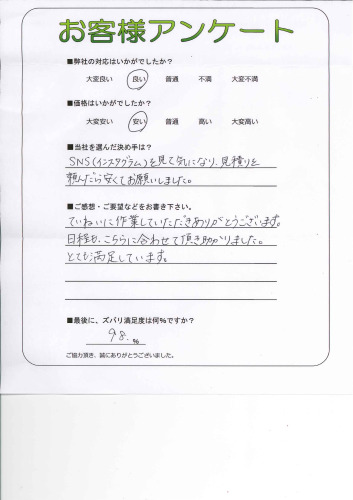 お客様アンケート
■弊社の対応はいかがでしたか？
大変良い 良い 普通 不満 大変不満
■価格はいかがでしたか？
大変安い 安い 普通 高い 大変高い
■当社を選んだ決め手は？
SNS(インスタグラム)を見て気になり、見積りを
頼んだら安くてお願いしました。
■ご感想・ご要望などをお書き下さい。
ていねいに作業していただきありがとうございます。
日程も、こちらに合わせて頂き助かりました。
とても満足しています。
■最後に、ズバリ満足度は何%ですか？
98. %
ご協力頂き、誠にありがとうございました。